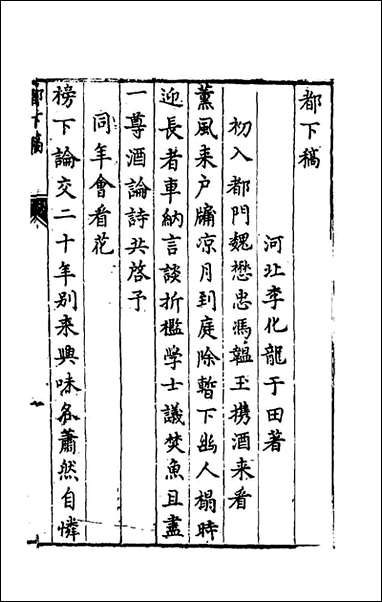 都下稿
河北李化龍于田著
初入都門魏懋忠馮韞玉携酒来看
薰風来户牖凉月到庭除暫下幽人榻時
迎長者車納言談折檻学士議焚魚且盡
一尊酒論詩共啓予
同年會看花
榜下論交二十年别来興味各蕭然自憐
都下稿
一